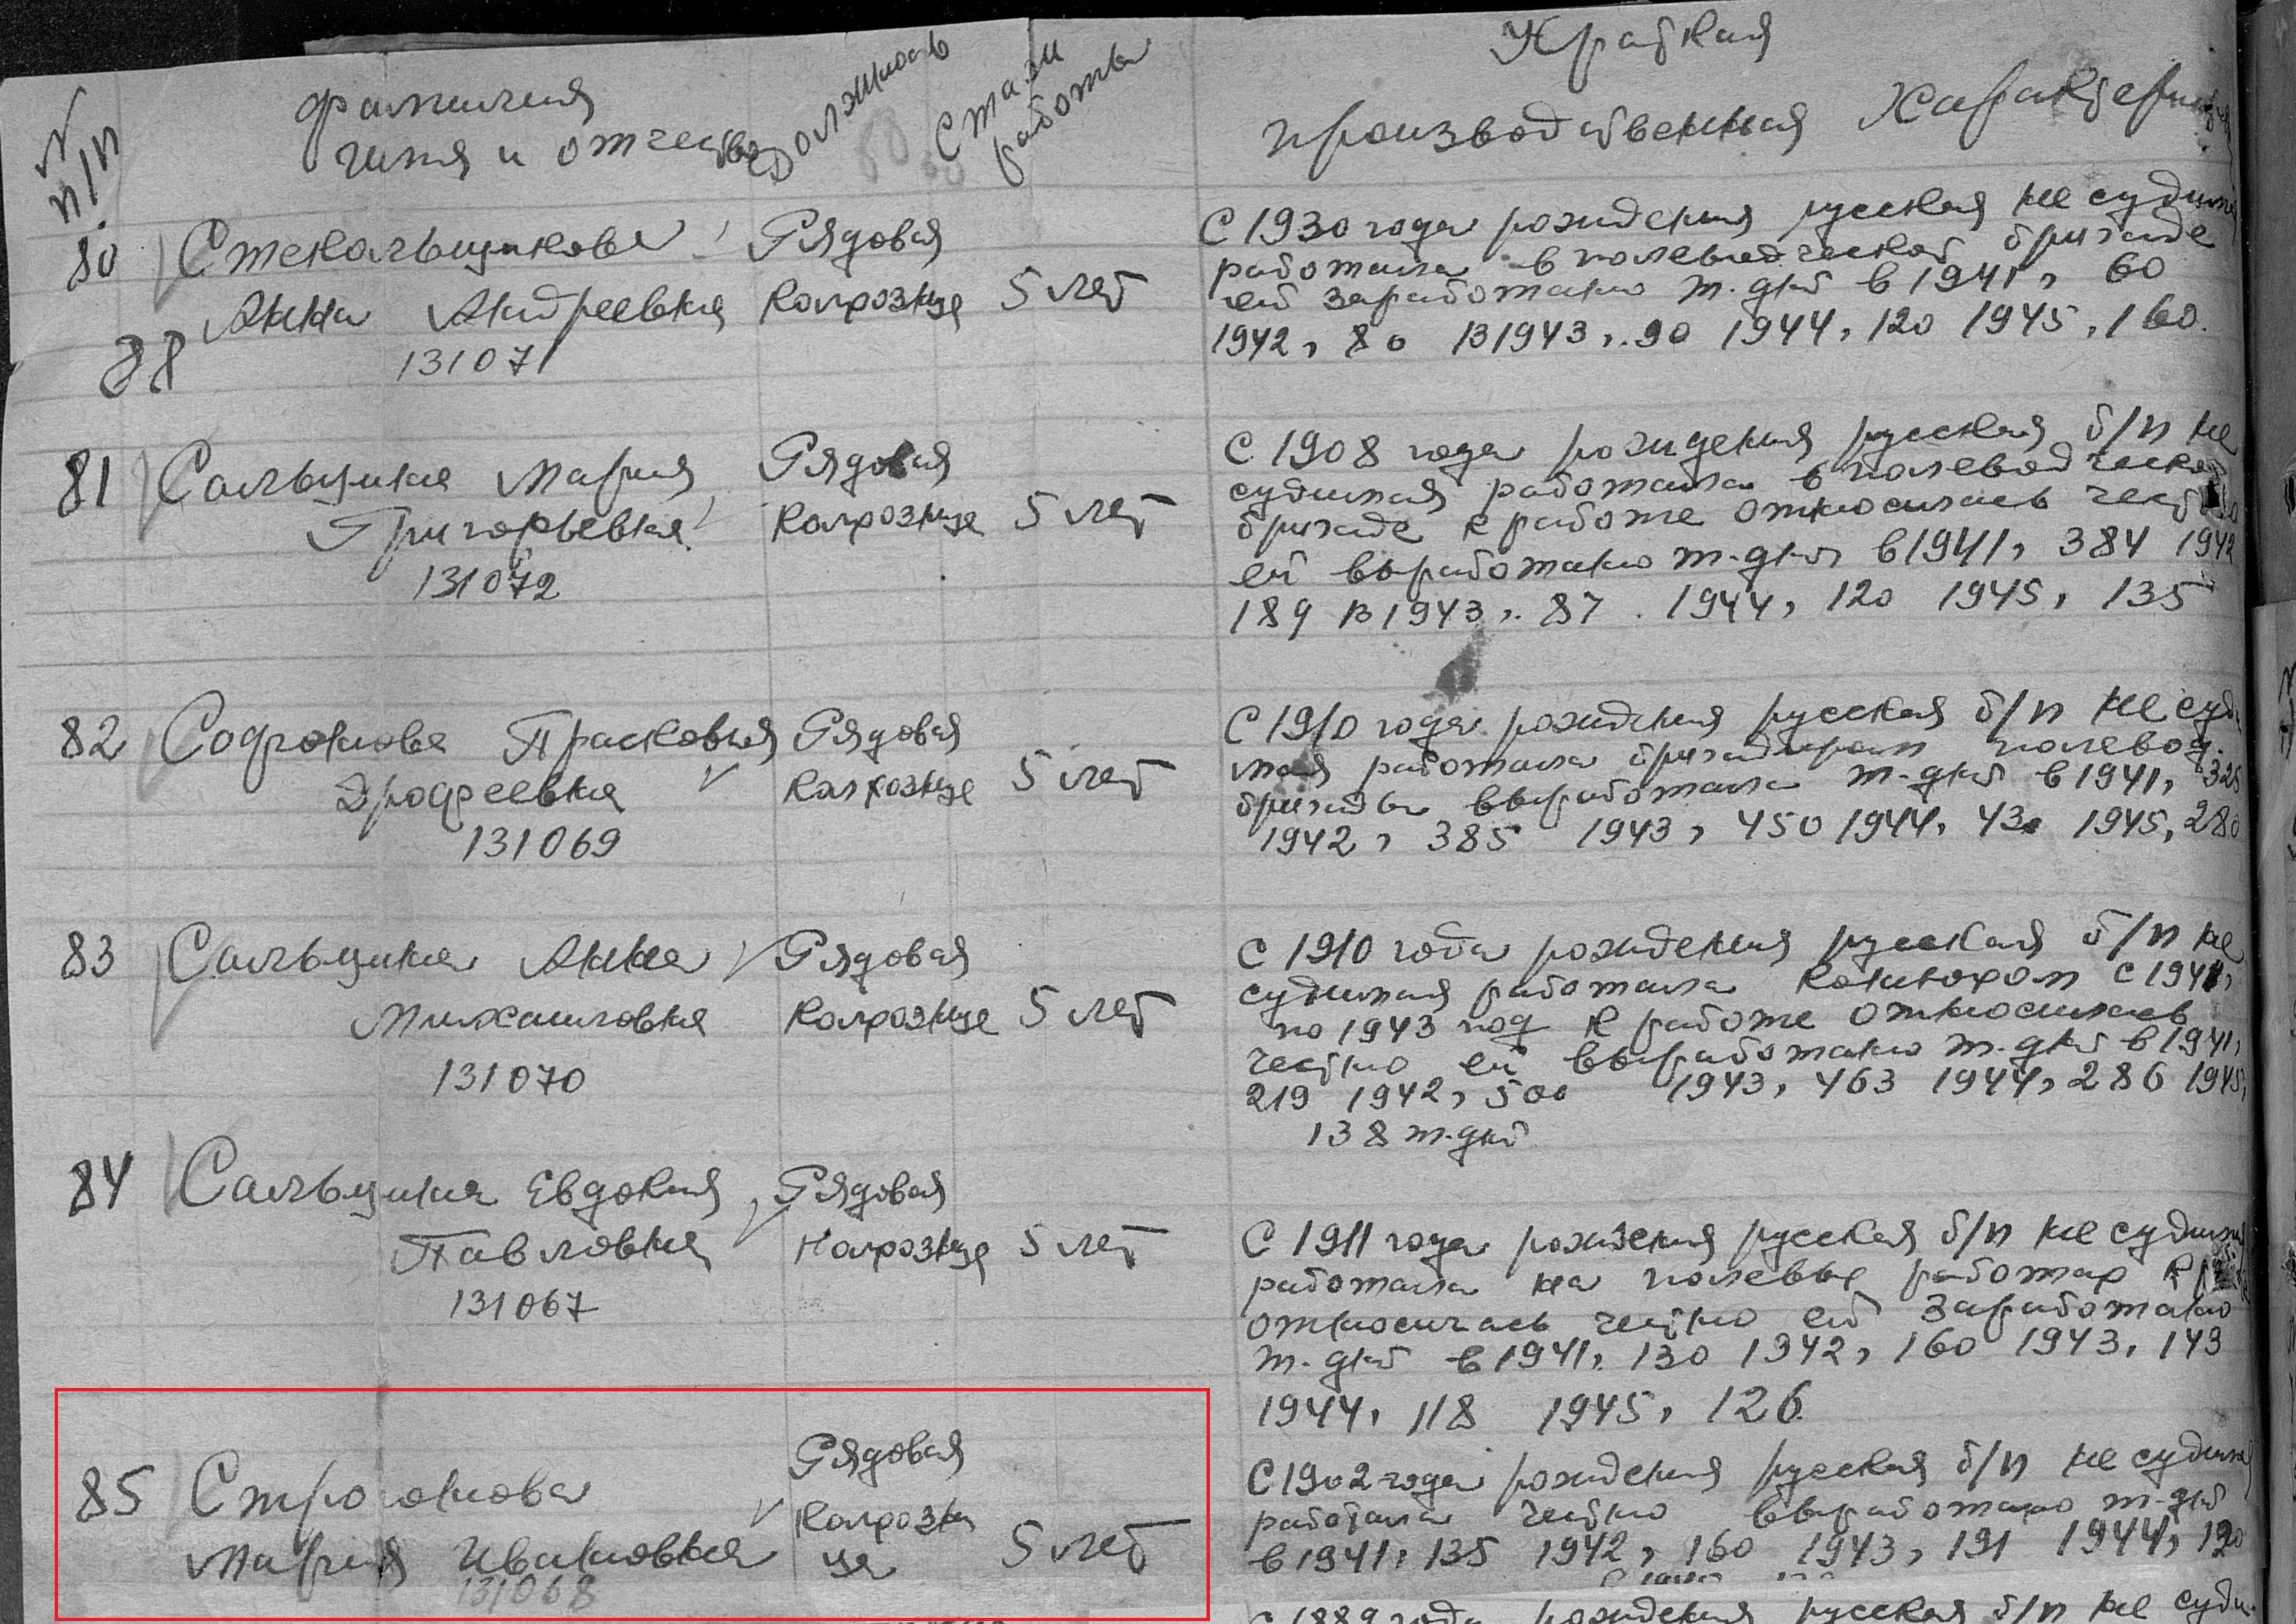 N п/п
фамилия
имя и отчество
Должность
Стаж
работы
Краткая
производственная
80 Стекольщикова
Анна Андреевна
131071
88
Рядовая
Колхозница
5 лет
С 1930 года рождения русская не
работала в полеводческой бригаде
ей заработано т-дней в 1941, 60
1942, 80 в 1943, 90 1944, 120 1945, 160.
81 Сальщина Мария
Григорьевна
131072
Рядовая
Колхозница
5 лет
С 1908 года рождения русская б/п не
судимая работала в
бригаде к работе относилась
ей выработано т-дней в 1941, 384 1942
189 в 1943, 87 1944, 120 1945, 135
82 Софронова Прасковья
131069
Рядовая
Колхозница
5 лет
С 1910 года рождения русская б/п не
работала бригадиром полевод.
бригады выработала т-дней в 1941, 325
1942, 385 1943, 450 1944, 430 1945, 280
83 Сальщина Анна
Михайловна
131070
Рядовая
Колхозница
5 лет
С 1910 года рождения русская б/п не
судимая работала конюхом с 1941,
по 1943 год к работе относилась
честно ей выработано т-дней в 1941,
219 1942, 500 1943, 463 1944, 286 1945,
138 т-дней
84 Сальщина Евдокия
Павловна
131067
Рядовая
Колхознице
5 лет
С 1911 года рождения русская б/п не
работала на полевых работах к
относилась честно ей заработано
т-дней в 1941, 130 1942, 160 1943, 143
1944, 118 1945, 126
85 Строгонова
Мария Ивановна
131068
Рядовая
Колхозни
це
5 лет
С 1902 года рождения русская б/п не
работала честно выработано т-дней
в 1941, 135 1942, 160 1943, 191 1944, 190
С 1889 года рождения русская б/п не